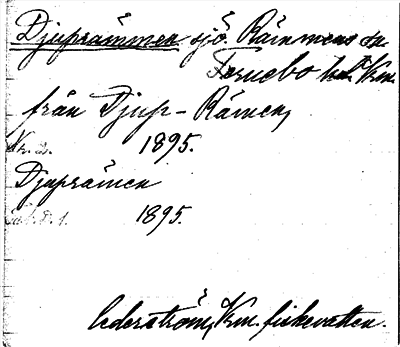 Djuprämmen sjö. Rämmens sn
Fernebo hd. Krm.
från Djup-Rämen,
1895.
Djuprämen
1895.
Cederström, Krm. fiskevatten.